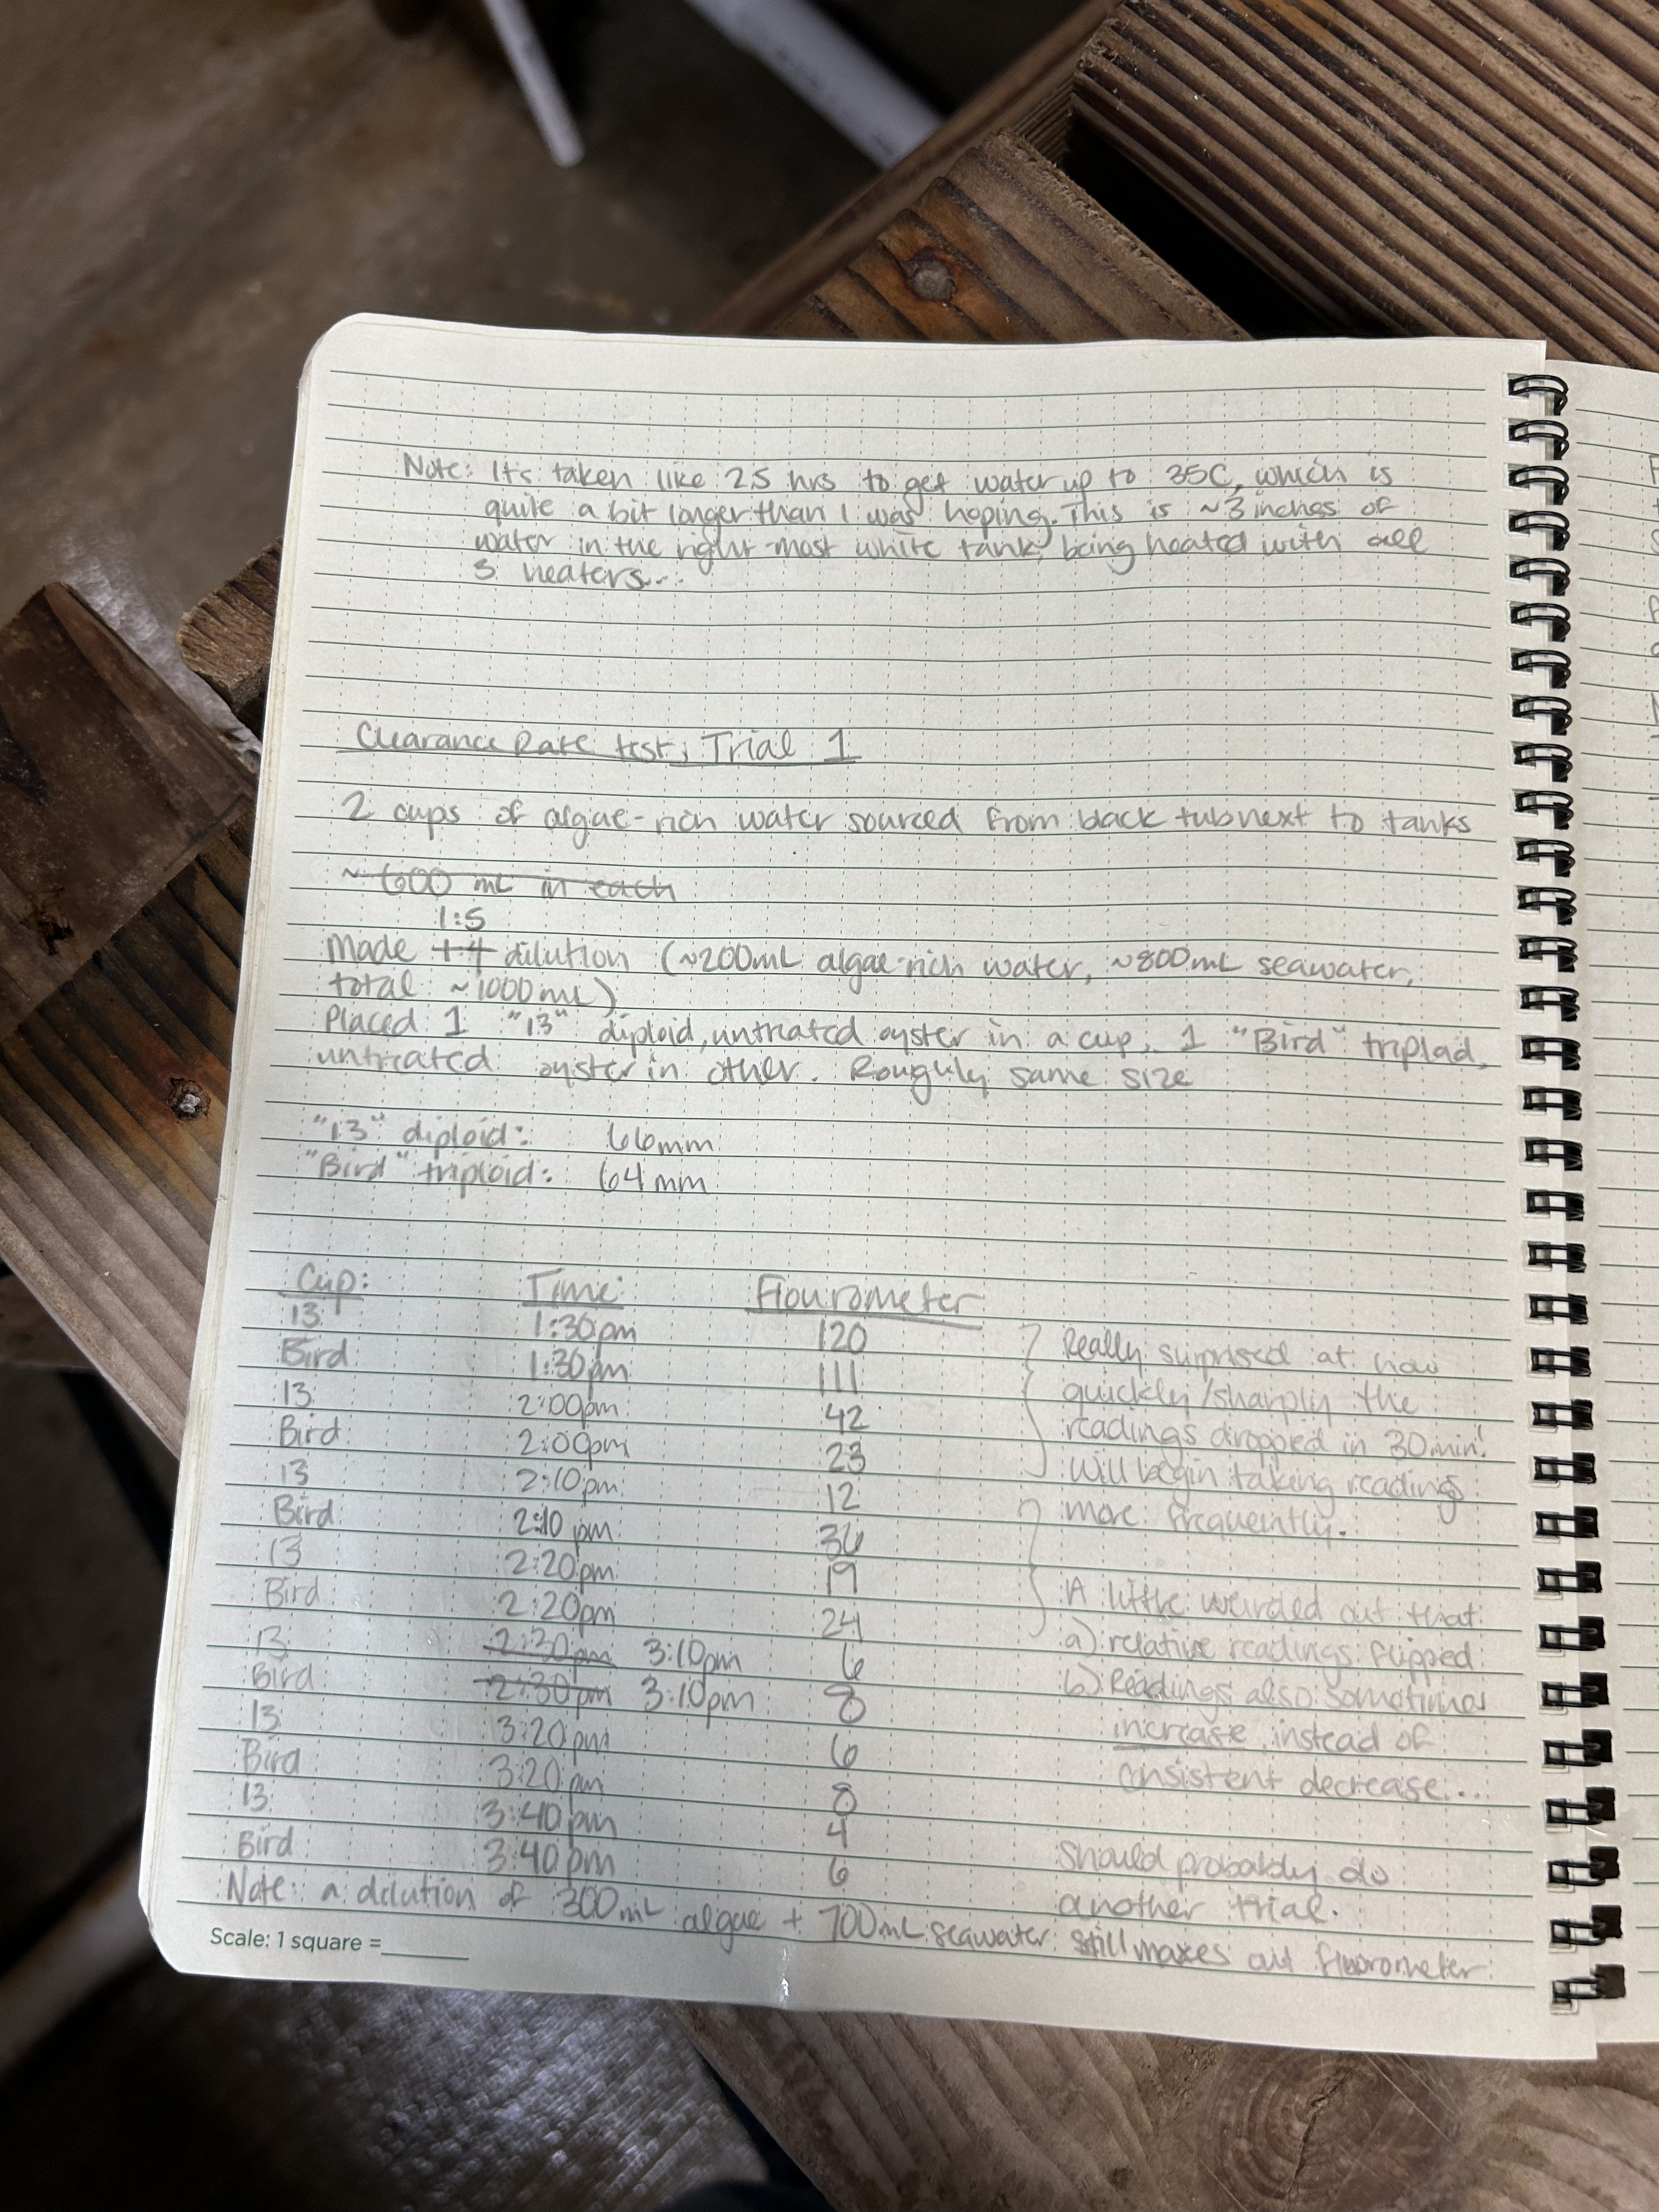 Note: It's taken like 2.5 hrs to get water up to 35C, which is
quite a bit longer than I was hoping. This is ~3 inches of
water in the right-most white tank, being heated with all
3 heaters...
Clearance Rate test, Trial 1
2 cups of algae-rich water sourced from black tub next to tanks
~600 mL in each
1:5
Made 1:4 dilution (~200mL algae-rich water, ~800mL seawater,
total: ~1000mL)
Placed 1 "13" diploid, untreated oyster in a cup, 1 "Bird" triploid,
untreated oyster in other. Roughly same size
"13" diploid: 66mm
"Bird" triploid: 64mm
Cup: Time: Flourometer
13 1:30pm 120
Bird 1:30pm 111 Really surprised at how
13 2:00pm 42 quickly/sharply the
Bird 2:00pm 23 readings dropped in 30min!
13 2:10pm 12 Will begin taking readings
Bird 2:10pm 36 more frequently.
13 2:20pm 19
Bird 2:20pm 24 A little weirded out that
13 2:30pm 3:10pm 6 a) relative readings flipped
Bird 2:30pm 3:10pm 8 b) Readings also sometimes
13 3:20pm 6 increase instead of
Bird 3:20pm 8 consistent decrease...
13 3:40pm 4
Bird 3:40pm 6 Should probably do
another trial.
Note: a dilution of 300mL algae + 700mL seawater still maxes out fluorometer
Scale: 1 square =